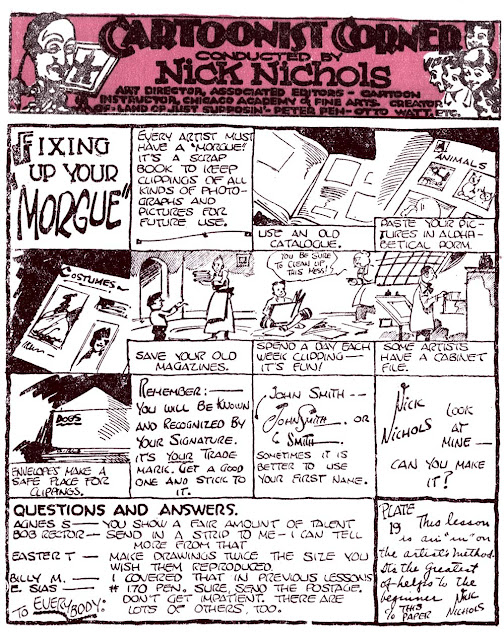 CARTOONIST CORNER
CONDUCTED BY
Nick Nichols
ART DIRECTOR, ASSOCIATED EDITORS - CARTOON
INSTRUCTOR, CHICAGO ACADEMY OF FINE ARTS. CREATOR
OF - LAND OF JUST SUPPOSIN' - PETER PEN - OTTO WATT, ETC.
FIXING
UP YOUR
"MORGUE"
EVERY ARTIST MUST
HAVE A "MORGUE".
IT'S A SCRAP
BOOK TO KEEP
CLIPPINGS OF ALL
KINDS OF PHOTO-
GRAPHS AND
PICTURES FOR
FUTURE USE.
USE AN OLD
CATALOGUE.
A
ANIMALS
PASTE YOUR PIC-
TURES IN ALPHA-
BETICAL FORM.
COSTUMES
SAVE YOUR OLD
MAGAZINES.
YOU BE SURE
TO CLEAN UP
THIS MESS!
SPEND A DAY EACH
WEEK CLIPPING—
IT'S FUN!
SOME ARTISTS
HAVE A CABINET
FILE.
DOGS
ENVELOPES MAKE A
SAFE PLACE FOR
CLIPPINGS.
REMEMBER:—
YOU WILL BE KNOWN
AND RECOGNIZED BY
YOUR SIGNATURE.
IT'S YOUR TRADE
MARK. GET A GOOD
ONE AND STICK TO
IT.
JOHN SMITH --
John Smith. OR
Smith.
SOMETIMES IT IS
BETTER TO USE
YOUR FIRST NAME.
NICK
NICHOLS
LOOK
AT
MINE—
CAN YOU MAKE
IT?
QUESTIONS AND ANSWERS.
AGNES S— YOU SHOW A FAIR AMOUNT OF TALENT
BOB RECTOR— SEND IN A STRIP TO ME - I CAN TELL
MORE FROM THAT
EASTER T— MAKE DRAWINGS TWICE THE SIZE YOU
WISH THEM REPRODUCED.
BILLY M.— I COVERED THAT IN PREVIOUS LESSONS
E. SIAS— #170 PEN. SURE, SEND THE POSTAGE.
TO EVERYBODY: DON'T GET IMPATIENT. THERE ARE
LOTS OF OTHERS, TOO.
PLATE
19 This lesson
is an "in" on
the artists method.
It's the Greatest
of helps to the
beginner
NICK
NICHOLS
TO THIS
PAPER